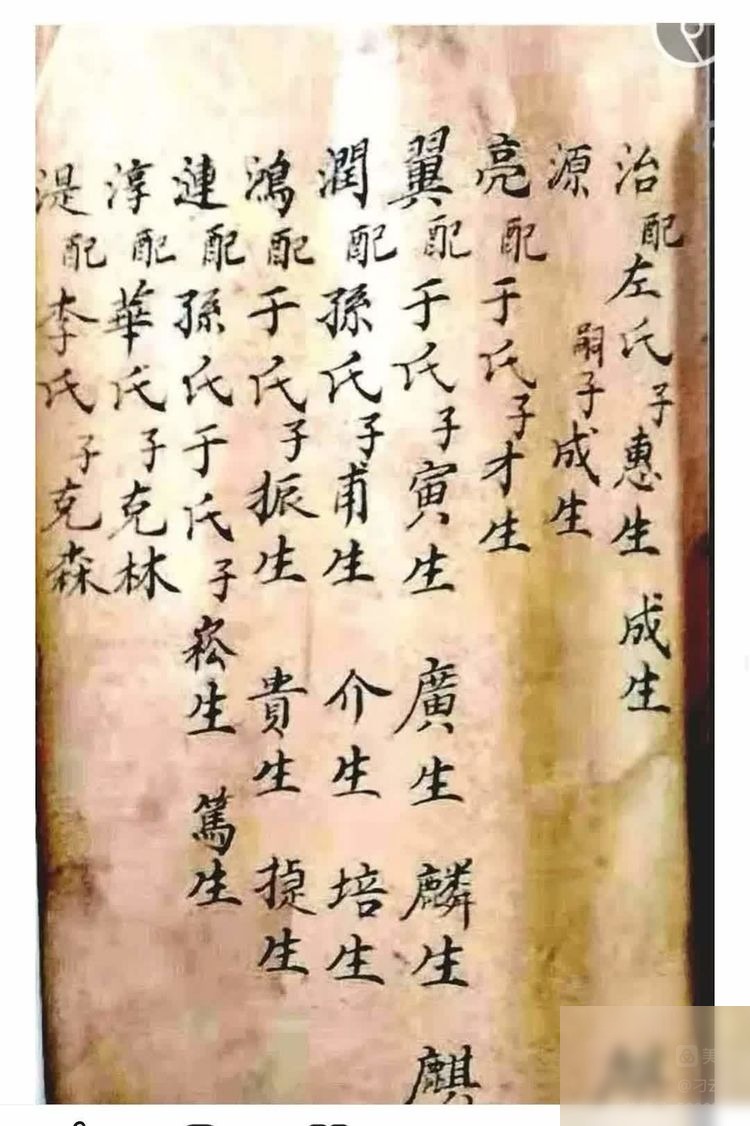 治配左氏子惠生成生
源嗣子成生
亮配于氏子才生
翼配于氏子寅生廣生麟生麒
潤配孫氏子甫生介生培生
鴻配于氏子振生貴生㨗生
漣配孫氏于氏子崧生篤生
淳配華氏子克林
湜配李氏子克森